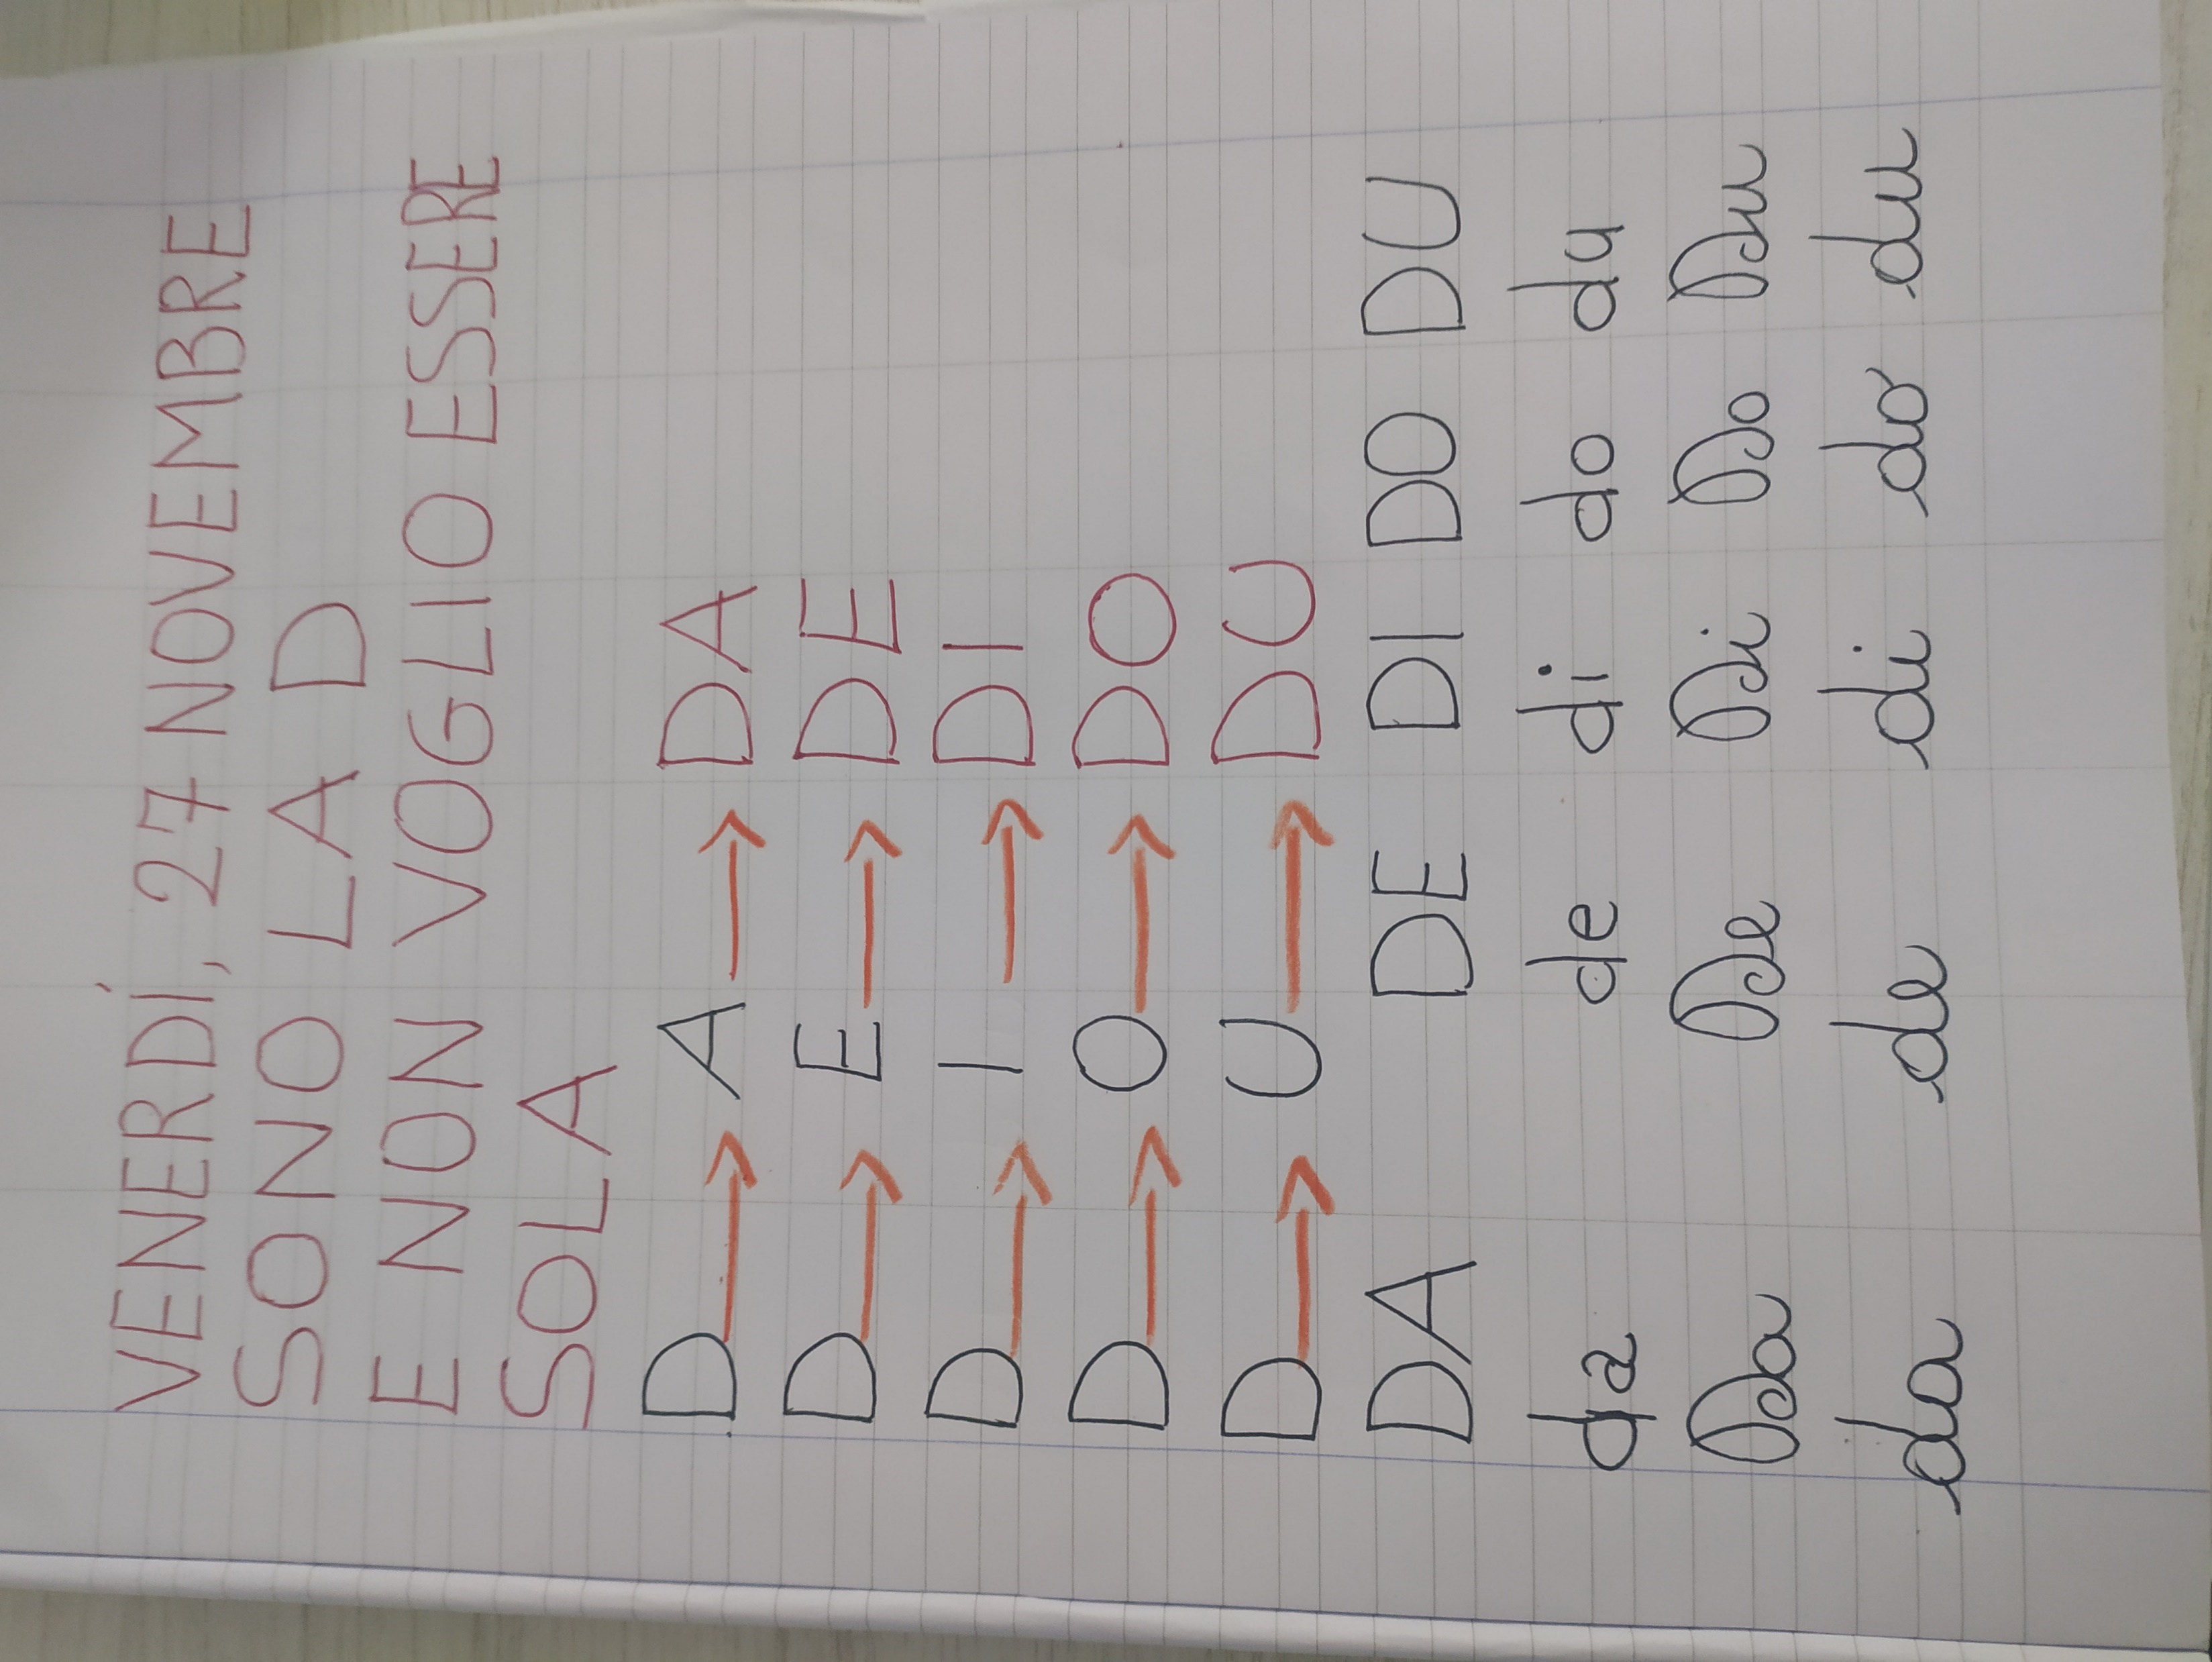 VENERDÌ, 27 NOVEMBRE
SONO LA D
E NON VOGLIO ESSERE
SOLA
D → A → DA
D → E → DE
D → I → DI
D → O → DO
D → U → DU
DA DE DI DO DU
da de di do du
Da De Di Do Du
da de di do du